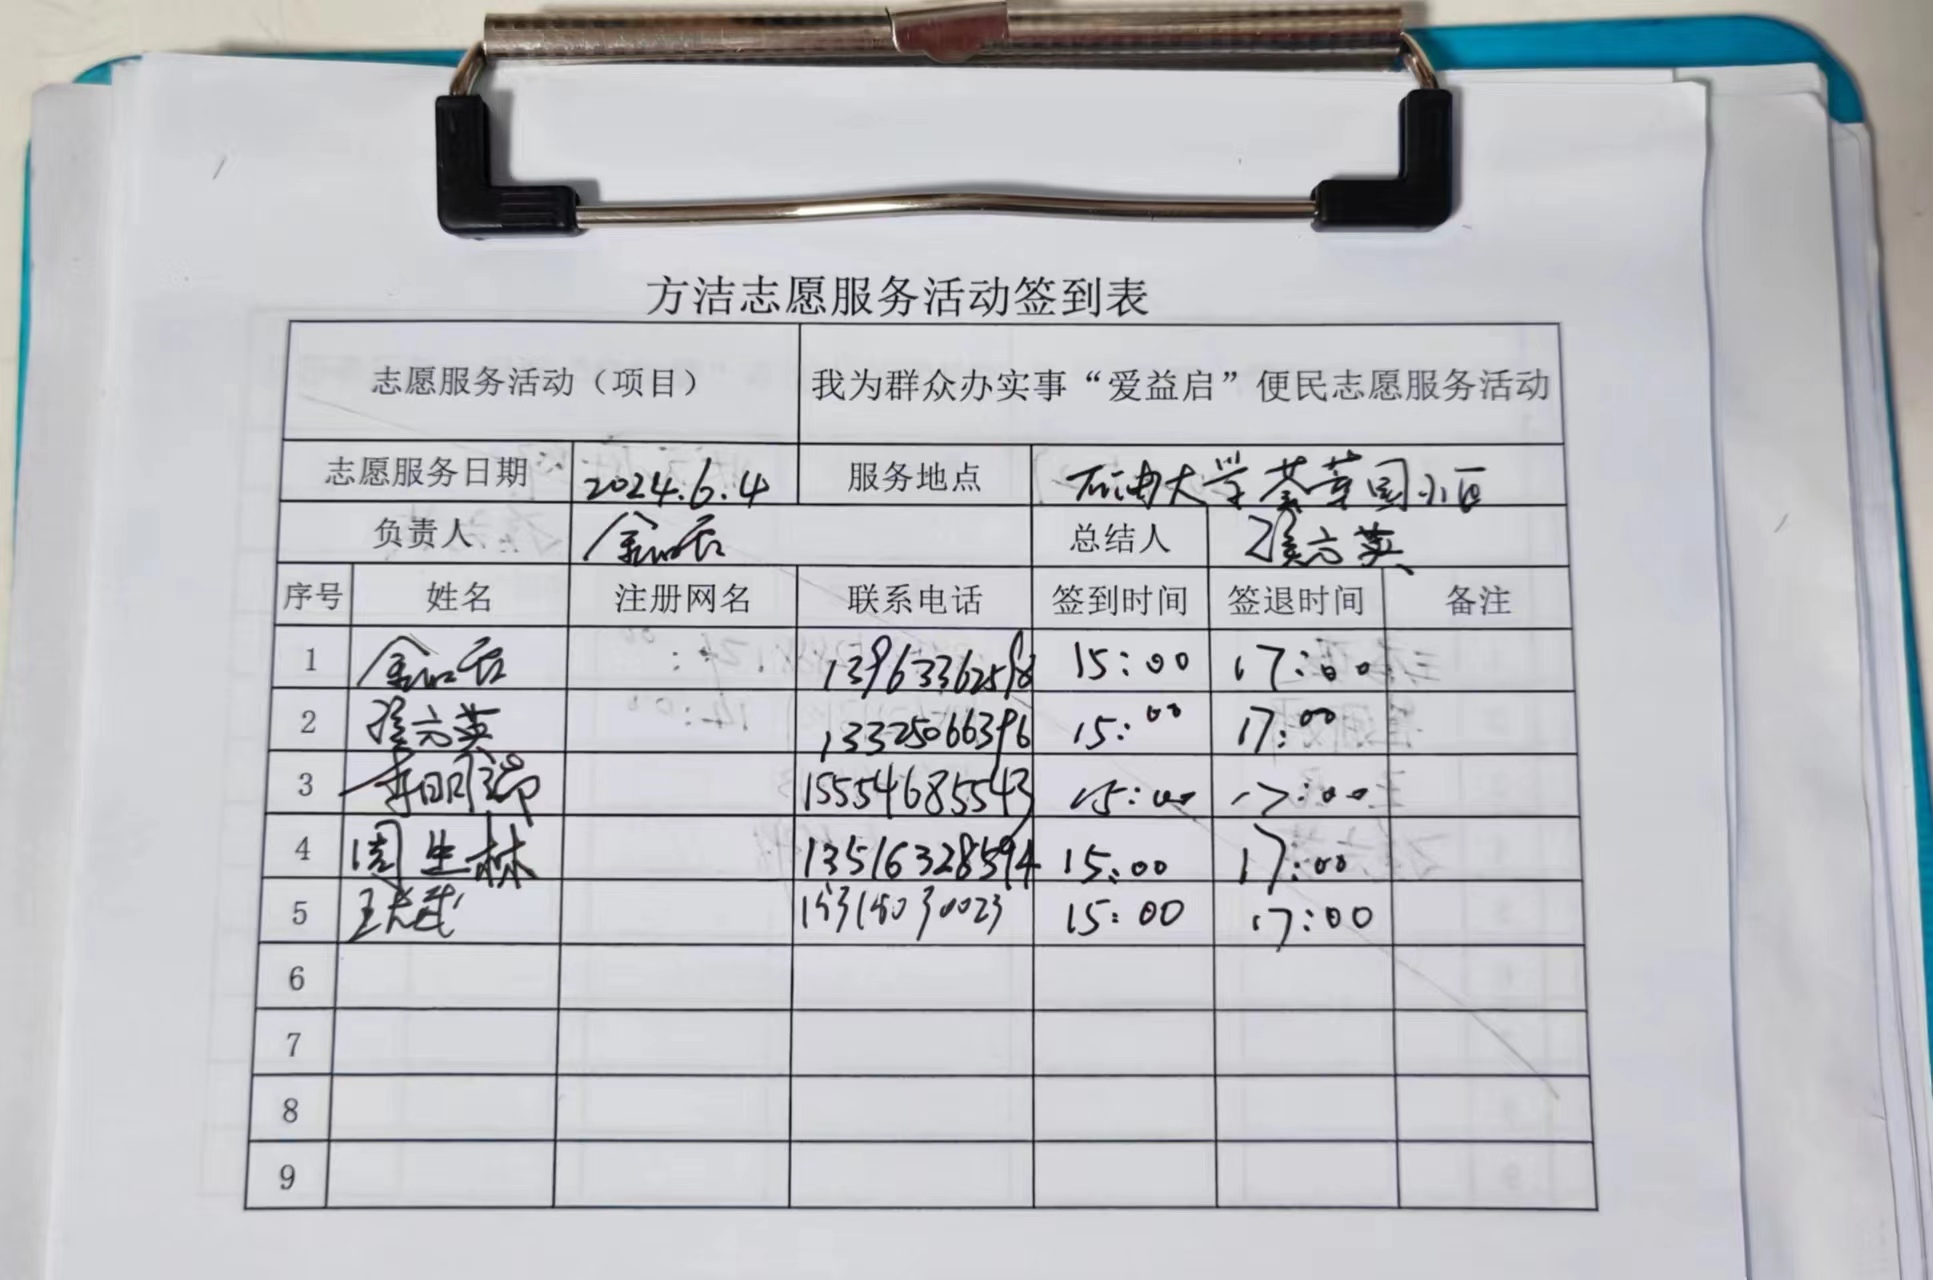 方洁志愿服务活动签到表
志愿服务活动（项目） 我为群众办实事“爱益启”便民志愿服务活动
志愿服务日期 2024.6.4 服务地点 石油大学荟萃园小区
负责人 总结人 六英
序号 姓名 注册网名 联系电话 签到时间 签退时间 备注
1 13963362598 15:00 17:00
2 六英 13325066396 15:00 17:00
3 李明瑞 15554685543 15:00 17:00
4 周生林 13516328594 15:00 17:00
5 王志武 15:00 17:00
6
7
8
9